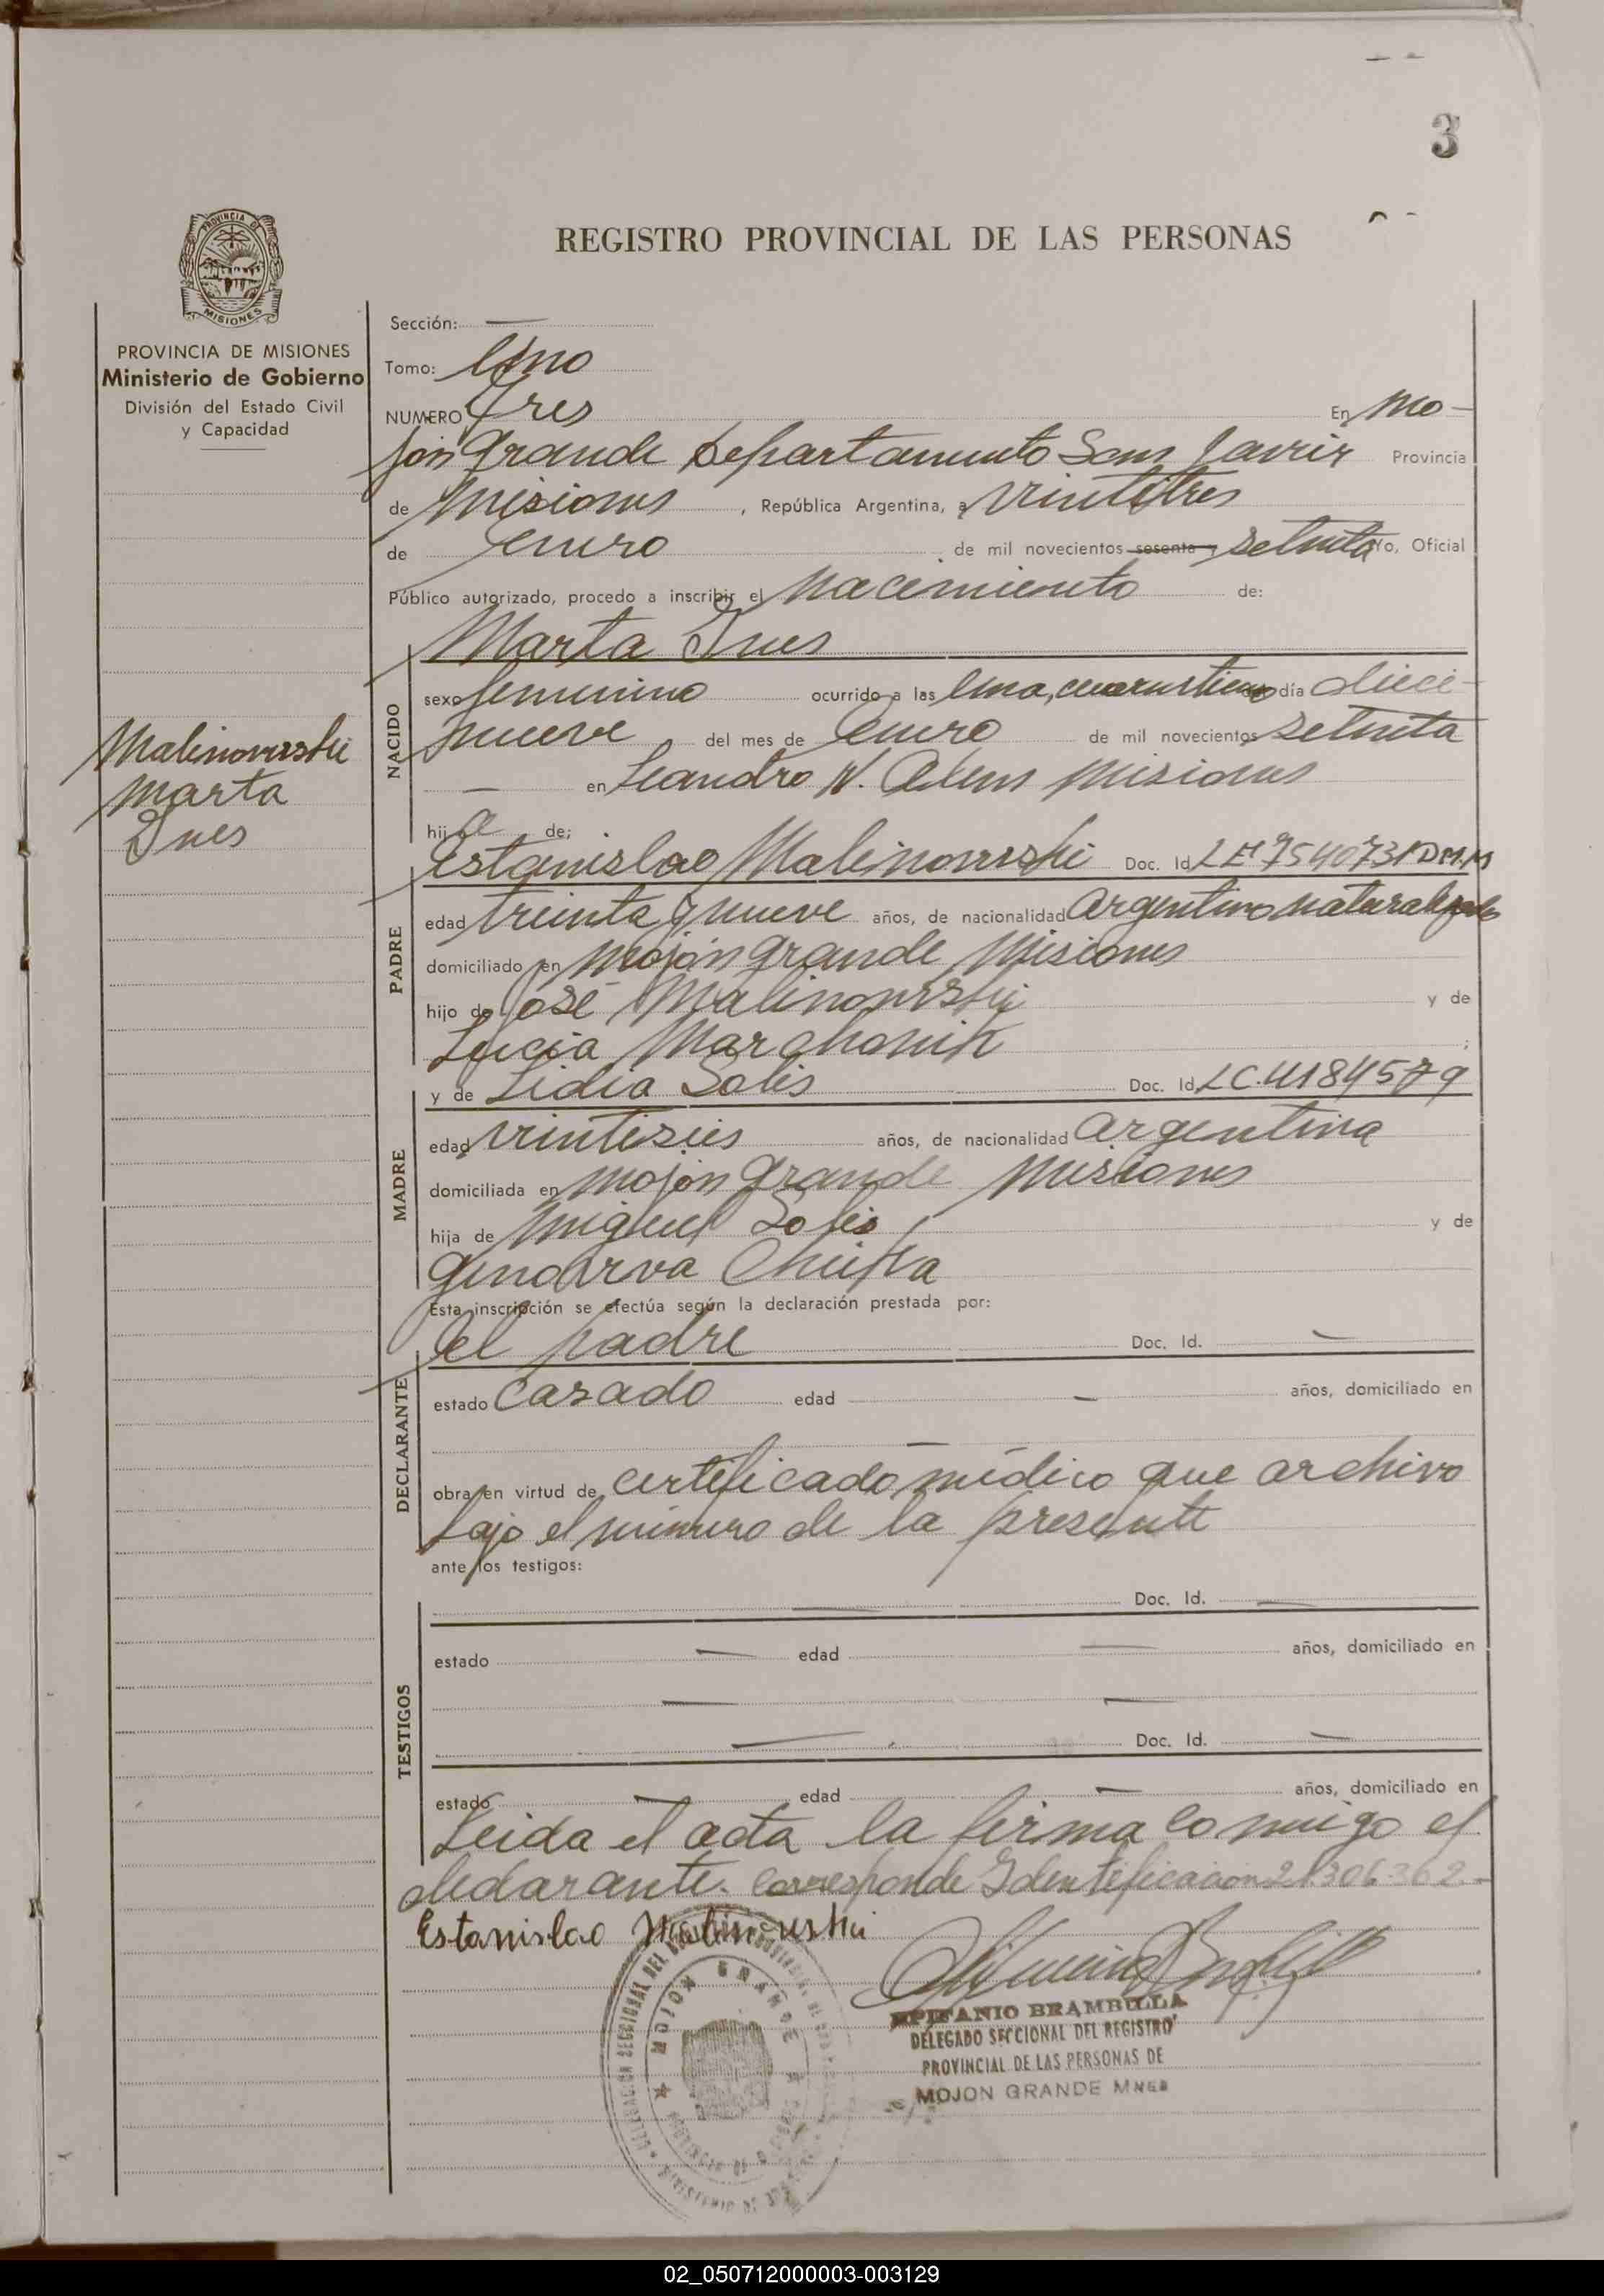 3
REGISTRO PROVINCIAL DE LAS PERSONAS
PROVINCIA DE
MISIONES
PROVINCIA DE MISIONES
Ministerio de Gobierno
División del Estado Civil
y Capacidad
Malinowski
Marta
Ines
Sección: —
Tomo: Uno
NUMERO Tres En Mo-
jón Grande Departamento San Javier Provincia
de Misiones, República Argentina, a veintitres
de Enero de mil novecientos sesenta y setenta Yo, Oficial
Público autorizado, procedo a inscribir el Nacimiento de:
Marta Ines
NACIDO
sexo femenino ocurrido a las Una, día dieci-
nueve del mes de Enero de mil novecientos setenta
— en Leandro N. Alem Misiones
hija de;
Estanislao Malinowski Doc. Id. LE 7540731 D.M.M
PADRE
edad treinta y nueve años, de nacionalidad Argentino naturalizado
domiciliado en Mojón Grande Misiones
hijo de José Malinowski y de
Lucia Marchonik;
y de Lidia Solis Doc. Id. LC.4184579
MADRE
edad veintiseis años, de nacionalidad Argentina
domiciliada en Mojón Grande Misiones
hija de Miguel Solis y de
Genoveva
Esta inscripción se efectúa según la declaración prestada por:
el padre Doc. Id. —
DECLARANTE
estado Casado edad — años, domiciliado en
—
obra en virtud de certificado médico que archivo
bajo el número de la presente
ante los testigos:
— Doc. Id. —
TESTIGOS
estado — edad — años, domiciliado en
— —
— Doc. Id. —
estado — edad — años, domiciliado en
Leida el acta la firma comigo el
declarante. Corresponde Identificación 21306362.-
Estanislao Malinowski
MOJON GRANDE
EPIFANIO BRAMBILLA
DELEGADO SECCIONAL DEL REGISTRO
PROVINCIAL DE LAS PERSONAS DE
MOJON GRANDE MNES
02_050712000003-003129